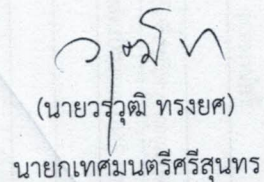 (นายวรวุฒิ ทรงยศ)
นายกเทศมนตรีศรีสุนทร